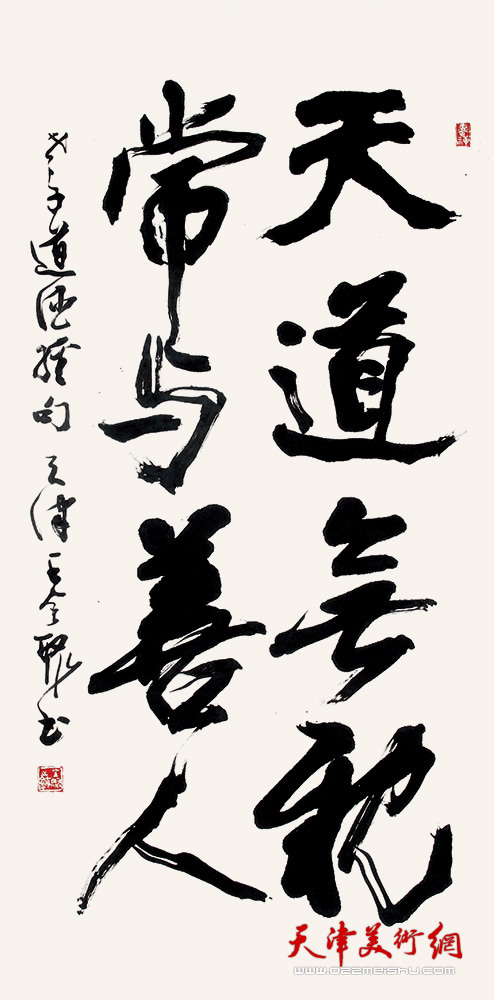 天道無親
常与善人
老子道德經句 天津王全聚书
天津美術網
www.022meishu.com